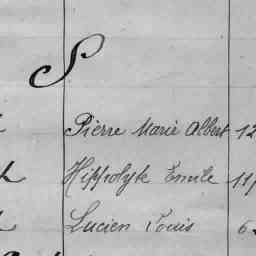 S
Pierre Marie Albert 12
Hippolyte Emile 11
Lucien Louis 6